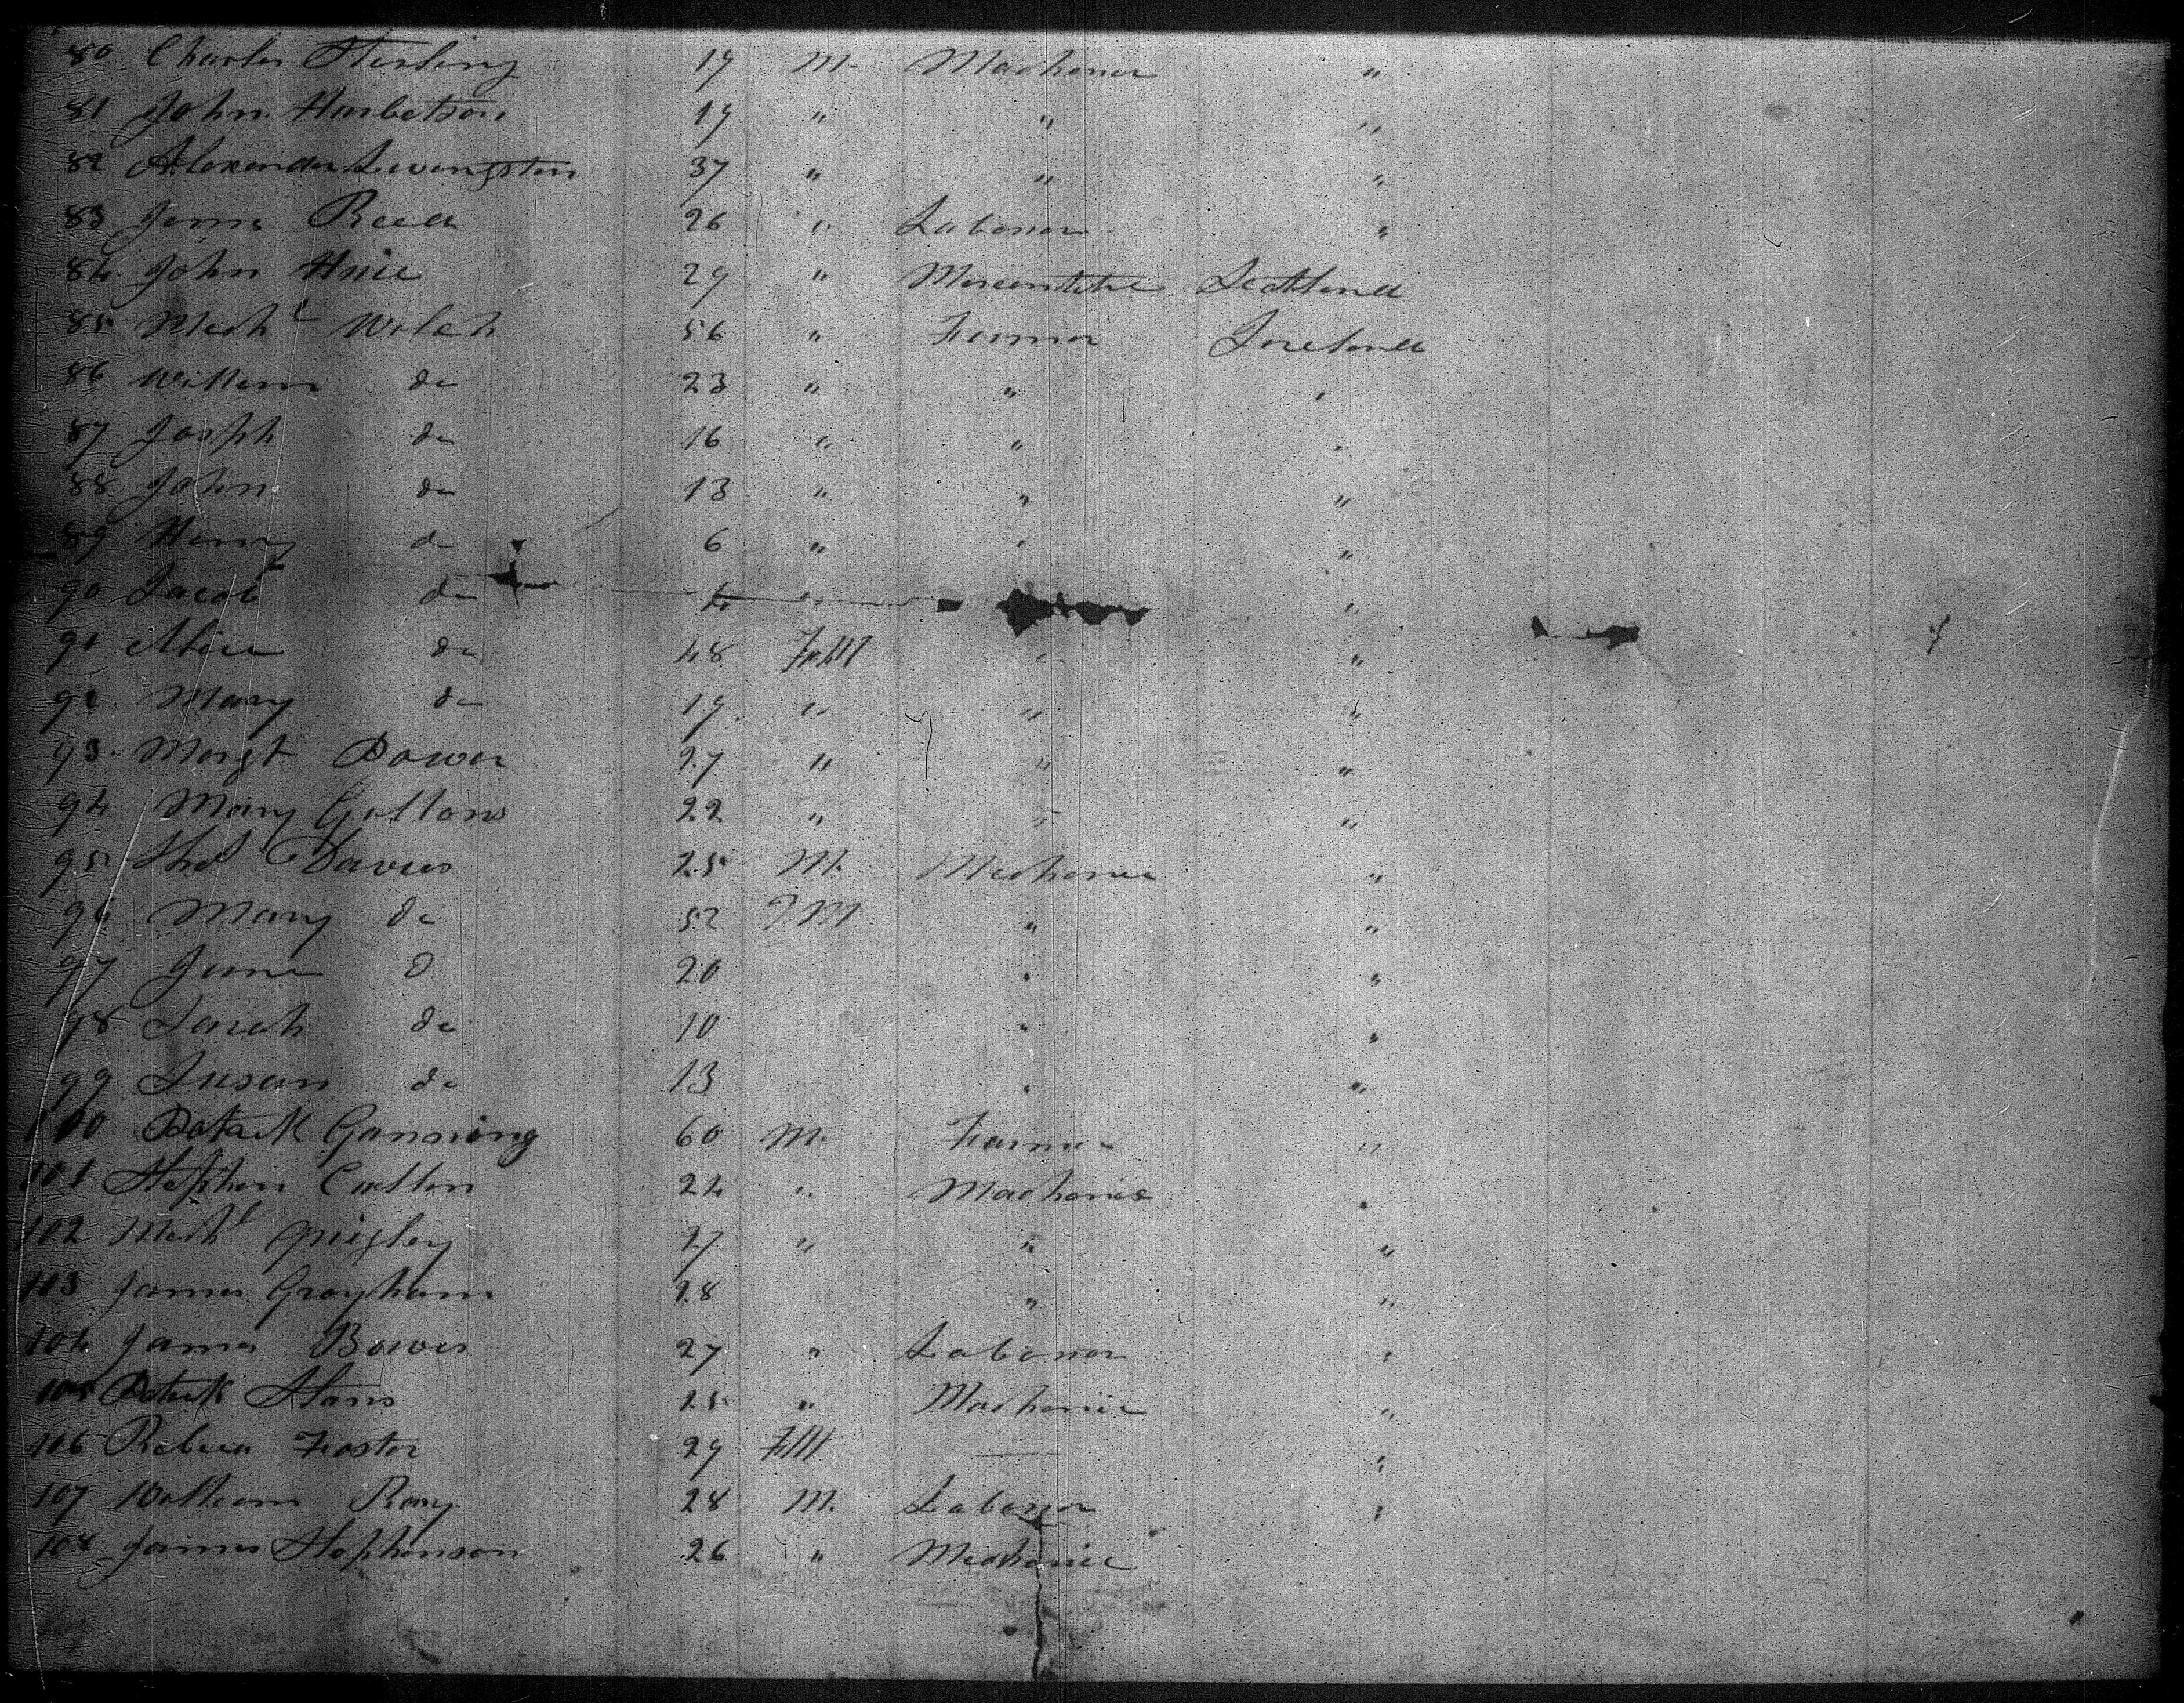 80 Charles Sterling 19 M. Machonic "
81 John Harbetson 19 " " "
82 Alexander Livengston 37 " " "
83 James Reed 26 " Labonor "
84 John 29 " Mercantile Scotland
85 Mich l Welch 56 " Farmer Ireland
86 William do 23 " " "
87 Joseph do 16 " " "
88 John do 13 " " "
89 Henry do 6 " " "
90 Jacob do 4 " "
91 Alice do 48 " "
92 Mary do 19 " " "
93 Margt Power 27 " " "
94 Mary 22 " " "
95 Thos Davies 25 M. Mechonic "
96 Mary do 52 FM " "
97 Jane D 20 " "
98 Sarah do 10 " "
99 Susan do 13 " "
100 Patrick Gannong 60 M. Farmer "
101 Stephen 24 " Machonic "
102 Mich l Quigley 27 " " "
103 James Grayham 28 " "
104 James Bower 27 " Labonor "
105 Patrick 25 " Machonic "
106 Rebeca Foster 29 — "
107 William Ray 28 M. Labonor "
108 James Stephenson 26 " Mechonic